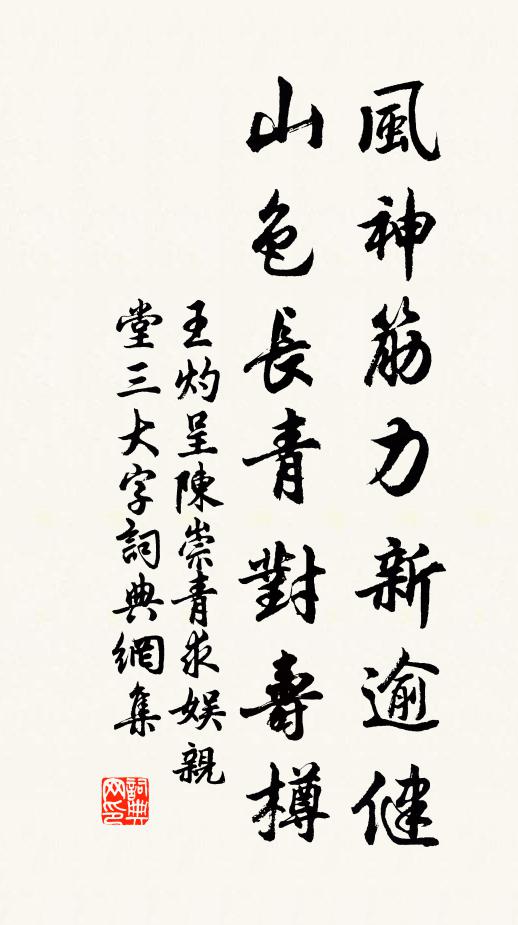 風神筋力新逾健
山色長青對壽樽
王灼呈陳崇青求娱親
堂三大字詞典網集
詞典
网印